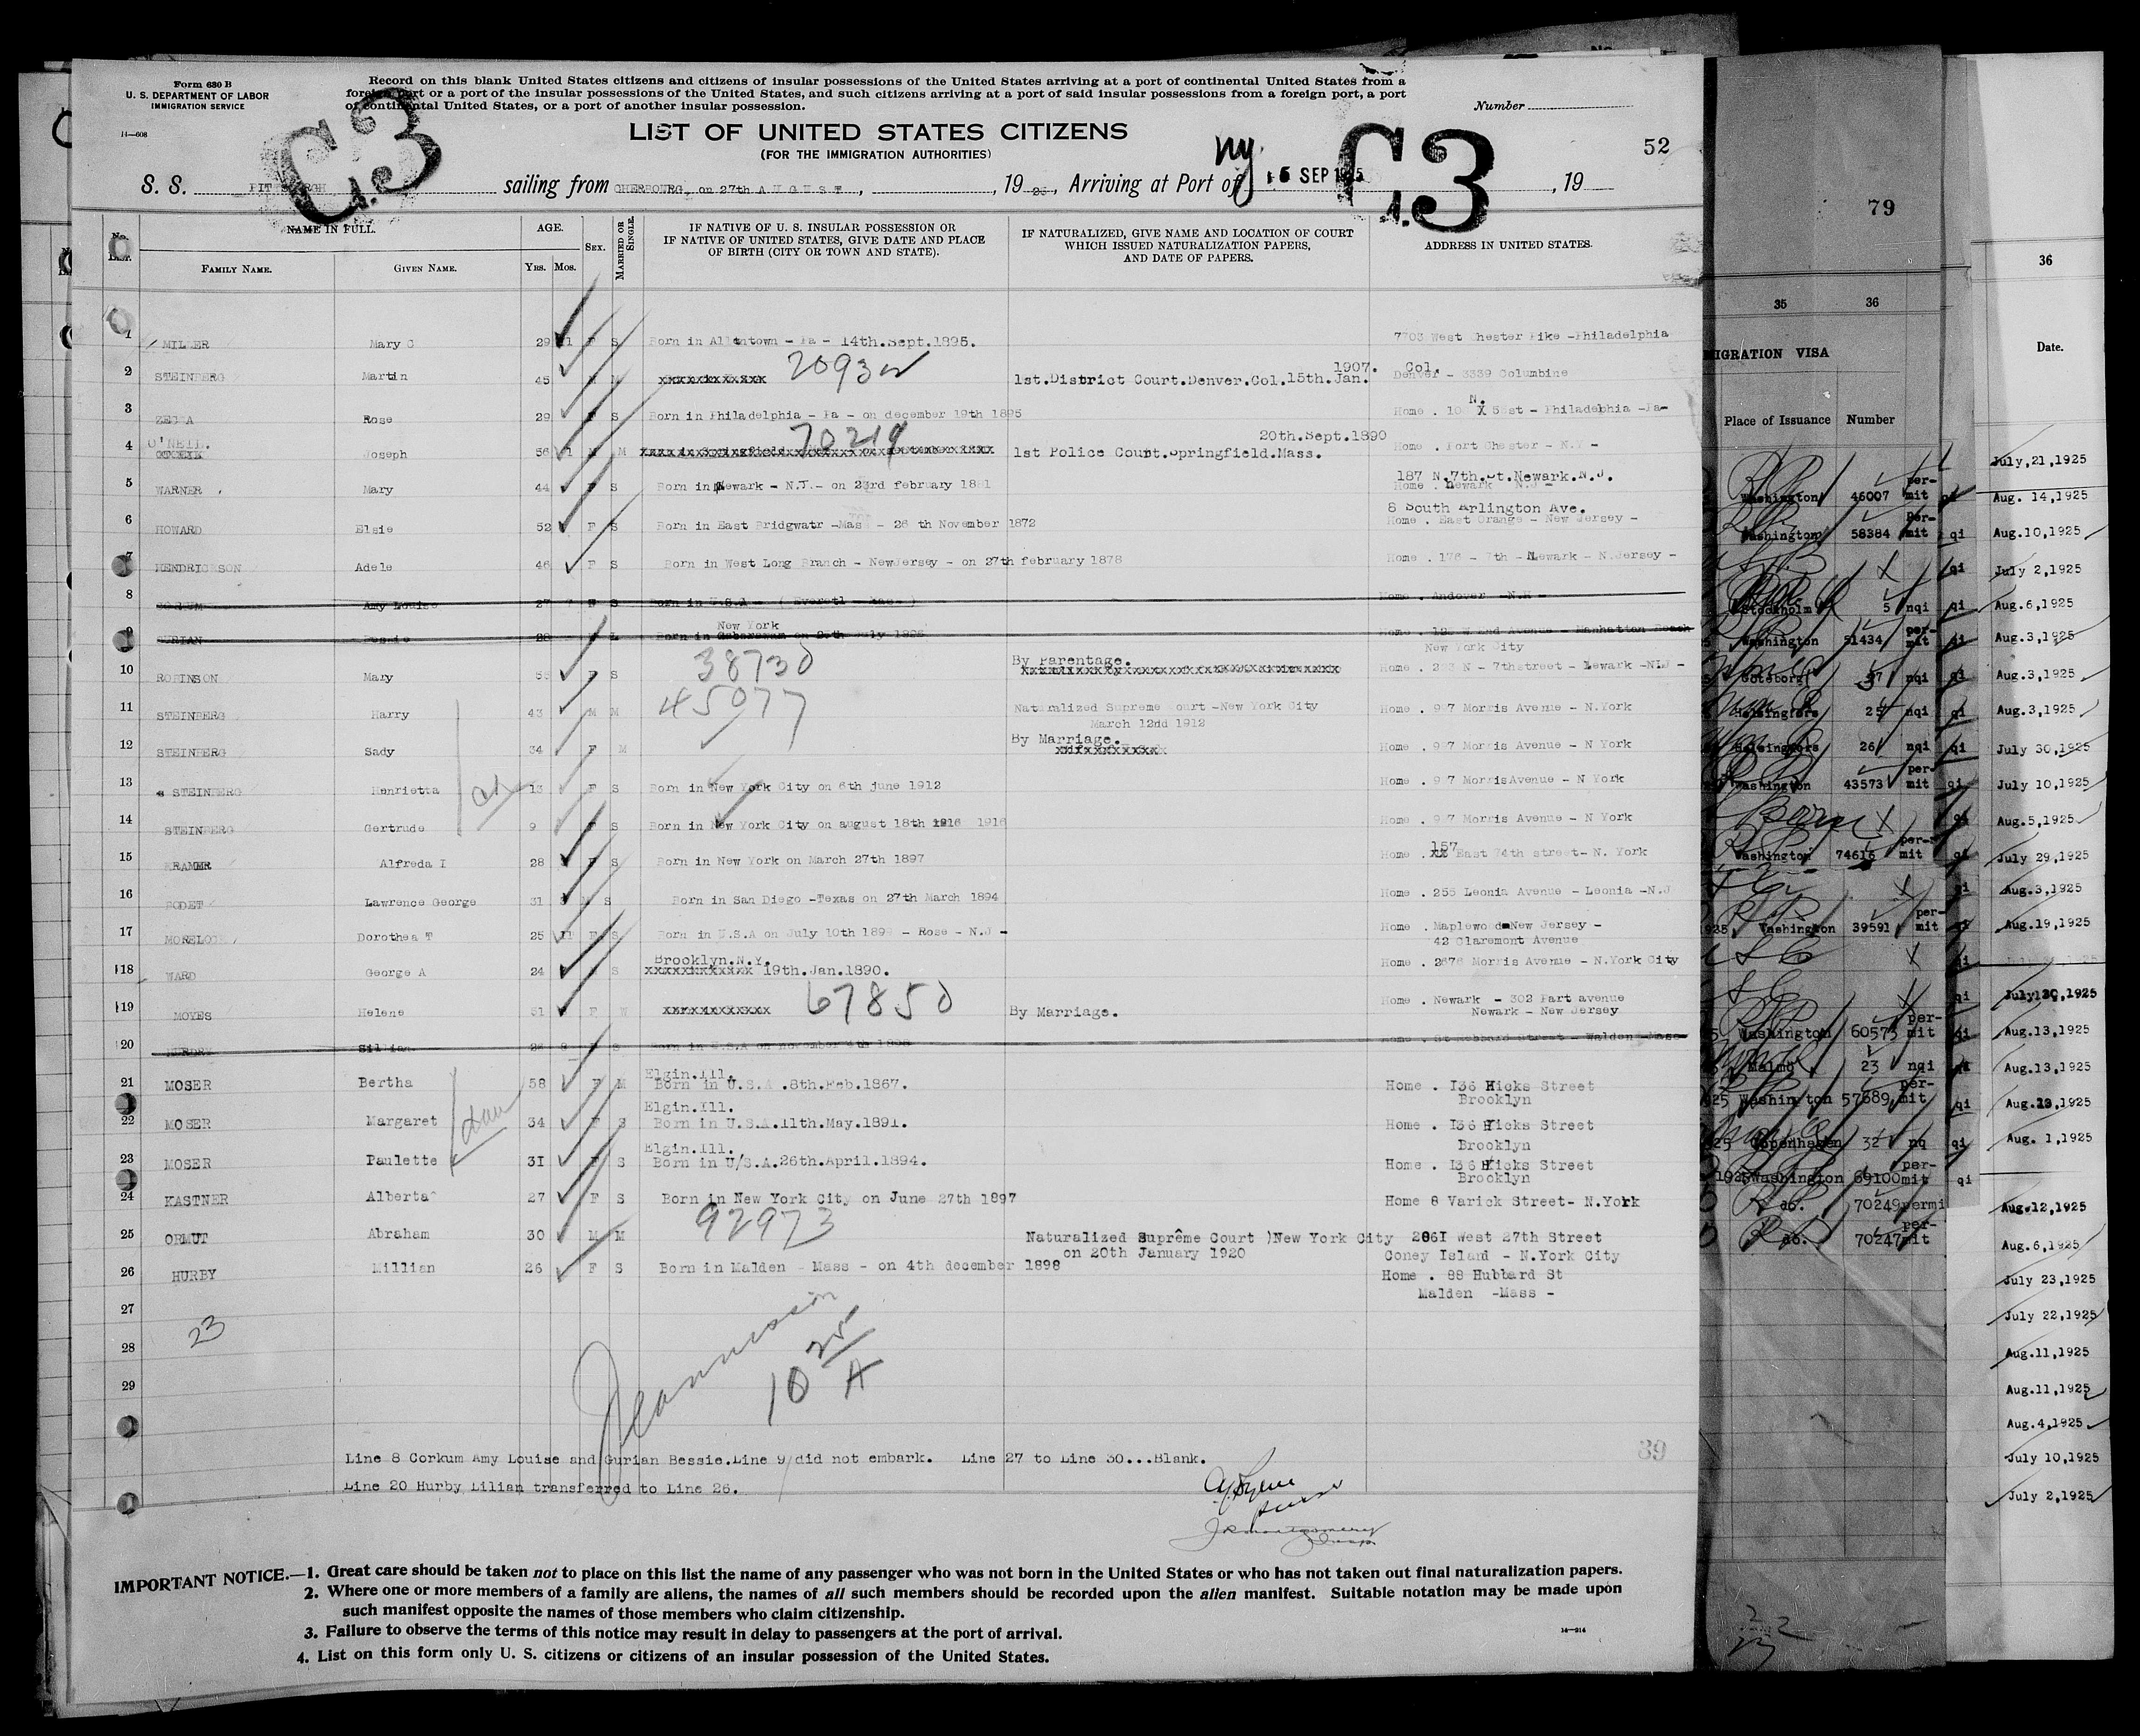 Form 630 B
U. S. DEPARTMENT OF LABOR
IMMIGRATION SERVICE
14—608
Record on this blank United States citizens and citizens of insular possessions of the United States arriving at a port of continental United States from a
foreign port or a port of the insular possessions of the United States, and such citizens arriving at a port of said insular possessions from a foreign port, a port
of continental United States, or a port of another insular possession.
Number
C3
LIST OF UNITED STATES CITIZENS
(FOR THE IMMIGRATION AUTHORITIES)
ny.
C3
52
S. S. PITTSBURGH sailing from CHERBOURG, on 27th AUGUST, 19 25, Arriving at Port of 5 SEP 1925, 19
No. NAME IN FULL. AGE. SEX. MARRIED OR SINGLE. IF NATIVE OF U. S. INSULAR POSSESSION OR IF NATIVE OF UNITED STATES, GIVE DATE AND PLACE OF BIRTH (CITY OR TOWN AND STATE). IF NATURALIZED, GIVE NAME AND LOCATION OF COURT WHICH ISSUED NATURALIZATION PAPERS, AND DATE OF PAPERS. ADDRESS IN UNITED STATES.
FAMILY NAME. GIVEN NAME. YRS. MOS.
1 MILLER Mary C 29 11 F S Born in Allentown - Pa - 14th.Sept.1895. 7703 West Chester Pike -Philadelphia
2 STEINBERG Martin 45 M M 2093 1st.District Court.Denver.Col.15th.Jan. 1907. Col. Denver - 3339 Columbine
3 Rose 29 F S Born in Philadelphia - Pa - on december 19th 1895 Home . N. - Philadelphia -Pa-
4 O'NEIL. Joseph 56 1 M M 70214 20th.Sept.1890 1st Police Court.Springfield.Mass. Home . Port Chester - N.Y -
5 WARNER Mary 44 F S Born in Newark - N.J.- on 23rd february 1881 187 N.7th.St.Newark.N.J. Home . Newark N.J -
6 HOWARD Elsie 52 F S Born in East Bridgwatr -Mass - 26 th November 1872 8 South Arlington Ave. Home . East Orange - New Jersey -
7 HENDRICKSON Adele 46 F S Born in West Long Branch - NewJersey - on 27th february 1878 Home . 176 - 7th - Newark - N.Jersey -
8 CORKUM Amy Louise 27 F S Born in U.S.A - ( Everett - Mass ) Home . Andover -N.H -
9 GURIAN Bessie 28 New York Born in July Home . W End Avenue - Manhattan Beach New York City
10 ROBINSON Mary F S 38730 By Parentage. Home . 223 N - 7thstreet - Newark -NIJ -
11 STEINBERG Harry 43 M M 45077 Naturalized Supreme Court -New York City March 12dd 1912 Home . 997 Morris Avenue - N.York
12 STEINBERG Sady 34 F M By Marriage. Home . 997 Morris Avenue - N York
13 STEINBERG Henrietta 13 F S Born in New York City on 6th june 1912 Home . 997 MorrisAvenue - N York
14 STEINBERG Gertrude 9 F S Born in New York City on august 18th 1916 1916 Home . 997 Morris Avenue - N York
15 KRAMER Alfreda I 28 F S Born in New York on March 27th 1897 Home . 157 East 74th street- N. York
16 Lawrence George 31 M S Born in San Diego -Texas on 27th March 1894 Home . 255 Leonia Avenue - Leonia -N.J
17 Dorothea T 25 11 F S Born in U.S.A on July 10th 1899 - Rose - N.J - Home . Maplewood New Jersey - 42 Claremont Avenue
18 WARD George A 24 S Brooklyn.N.Y. 19th.Jan.1890. Home . 2676 Morris Avenue - N.York City
19 MOYES Helene 51 F W 67850 By Marriage. Home . Newark - 302 Part avenue Newark - New Jersey
20 Born in U.S.A on november 4th Home . Hubbard Street - Malden -Mass
21 MOSER Bertha 58 F M Elgin.Ill. Born in U.S.A .8th.Feb.1867. Home . I36 Hicks Street Brooklyn
22 MOSER Margaret 34 F S Elgin.Ill. Born in U.S.A.11th.May.1891. Home . I36 Hicks Street Brooklyn
23 MOSER Paulette 3I F S Elgin.Ill. Born in U/S.A.26th.April.1894. Home . I36 Hicks Street Brooklyn
24 KASTNER Alberta 27 F S Born in New York City on June 27th 1897 Home 8 Varick Street- N.York
25 ORMUT Abraham 30 M M 92973 Naturalized Suprême Court )New York City on 20th January 1920 2861 West 27th Street Coney Island - N.York City
26 HURBY Millian 26 F S Born in Malden - Mass - on 4th december 1898 Home . 88 Hubbard St Malden -Mass -
27
23
28
29
10 25 A
Line 8 Corkum Amy Louise and Gurian Bessie.Line 9 did not embark. Line 27 to Line 30...Blank.
Line 20 Hurby Lilian transferred to Line 26.
39
IMPORTANT NOTICE.—1. Great care should be taken not to place on this list the name of any passenger who was not born in the United States or who has not taken out final naturalization papers.
2. Where one or more members of a family are aliens, the names of all such members should be recorded upon the alien manifest. Suitable notation may be made upon
such manifest opposite the names of those members who claim citizenship.
3. Failure to observe the terms of this notice may result in delay to passengers at the port of arrival.
4. List on this form only U. S. citizens or citizens of an insular possession of the United States.
14—914
79
35 36
MIGRATION VISA
Place of Issuance Number
Washington 46007 per-mit
Washington 58384 per-mit qi
qi
Stockholm 5 nqi qi
Washington 51434 per-mit qi
Goteborg 37 nqi qi
Helsingfors 25 nqi qi
Helsingfors 26 nqi qi
Washington 43573 per-mit qi
qi
Washington 74616 per-mit qi
qi
Washington 39591 per-mit qi
qi
qi
Washington 60573 per-mit qi
Malmo 23 nqi qi
25 Washington 57689 per-mit qi
25 Copenhagen 32 nq qi
1925 Washington 69100 per-mit qi
do. 70249 permi
do. 70247 per-mit
36
Date.
July,21,1925
Aug. 14,1925
Aug.10,1925
July 2,1925
Aug.6,1925
Aug.3,1925
Aug.3,1925
Aug.3,1925
July 30,1925
July 10,1925
Aug.5,1925
July 29,1925
Aug.3,1925
Aug.19,1925
July 30,1925
Aug.13,1925
Aug.13,1925
Aug.13,1925
Aug. 1,1925
Aug.12,1925
Aug.6,1925
July 23,1925
July 22,1925
Aug.11,1925
Aug.11,1925
Aug.4,1925
July 10,1925
July 2,1925